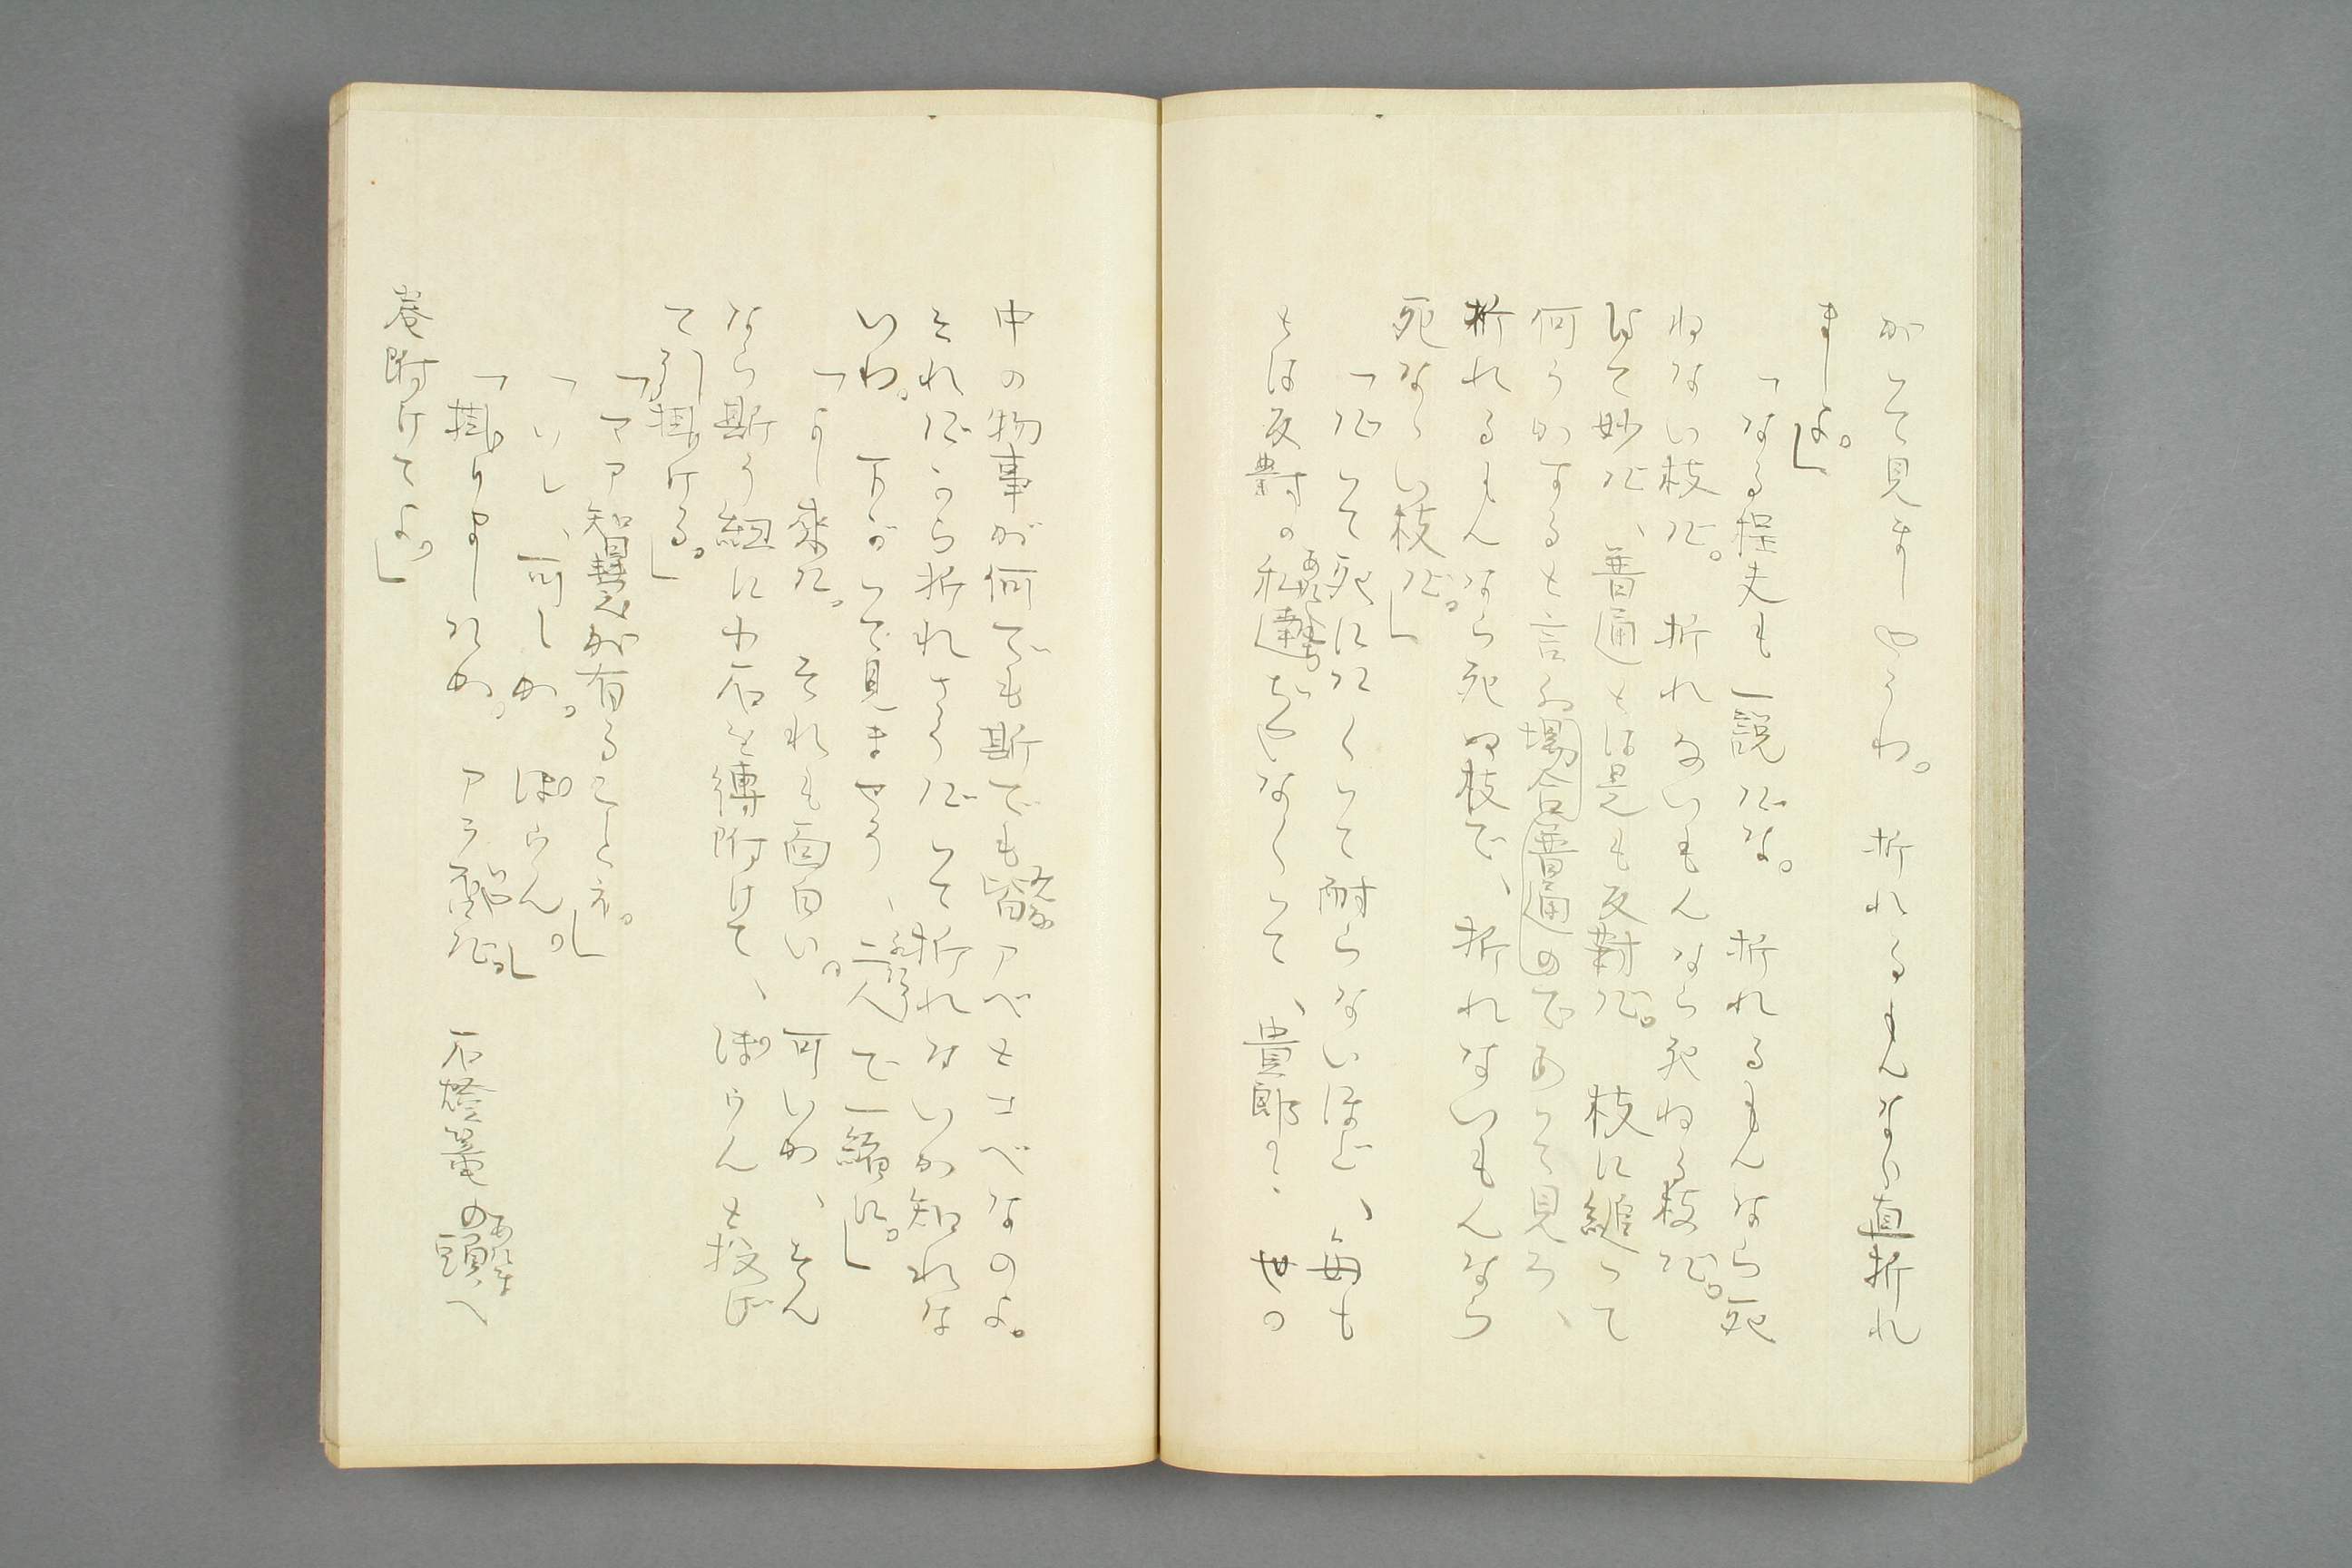 がつて見ましやうわ。折れるもんなら直折れ
ましよ。」
「なる程夫も一説だな。折れるもんなら死
ねない枝だ。折れないもんなら死ねる枝だ。
して妙だ、普通とは是も反對だ。枝に縋つて
何うかすると言ふ場合普通のであつて見ろ、
折れるもんなら死ぬ枝で、折れないもんなら
死なゝい枝だ。」
「だつて死にたくつて耐らないほど、毎も
とは反對の私達ぢやなくつて、貴郎。世の
中の物事が何でも斯でも皆アベコベなのよ。
それだから折れさうだつて折れないか知れな
いわ。下がつて見ませう、二人で一緒に。」
「よし來た。それも面白い。可いか、そん
なら斯う紐に小石を縛附けて、ぽウんと投げ
て引掛ける。」
「アア智慧が有ることネ。」
「いし、可しか。ぽウん。」
「掛りましたか。アラ否だ。」石燈籠の頭へ
巻附けてよ。」